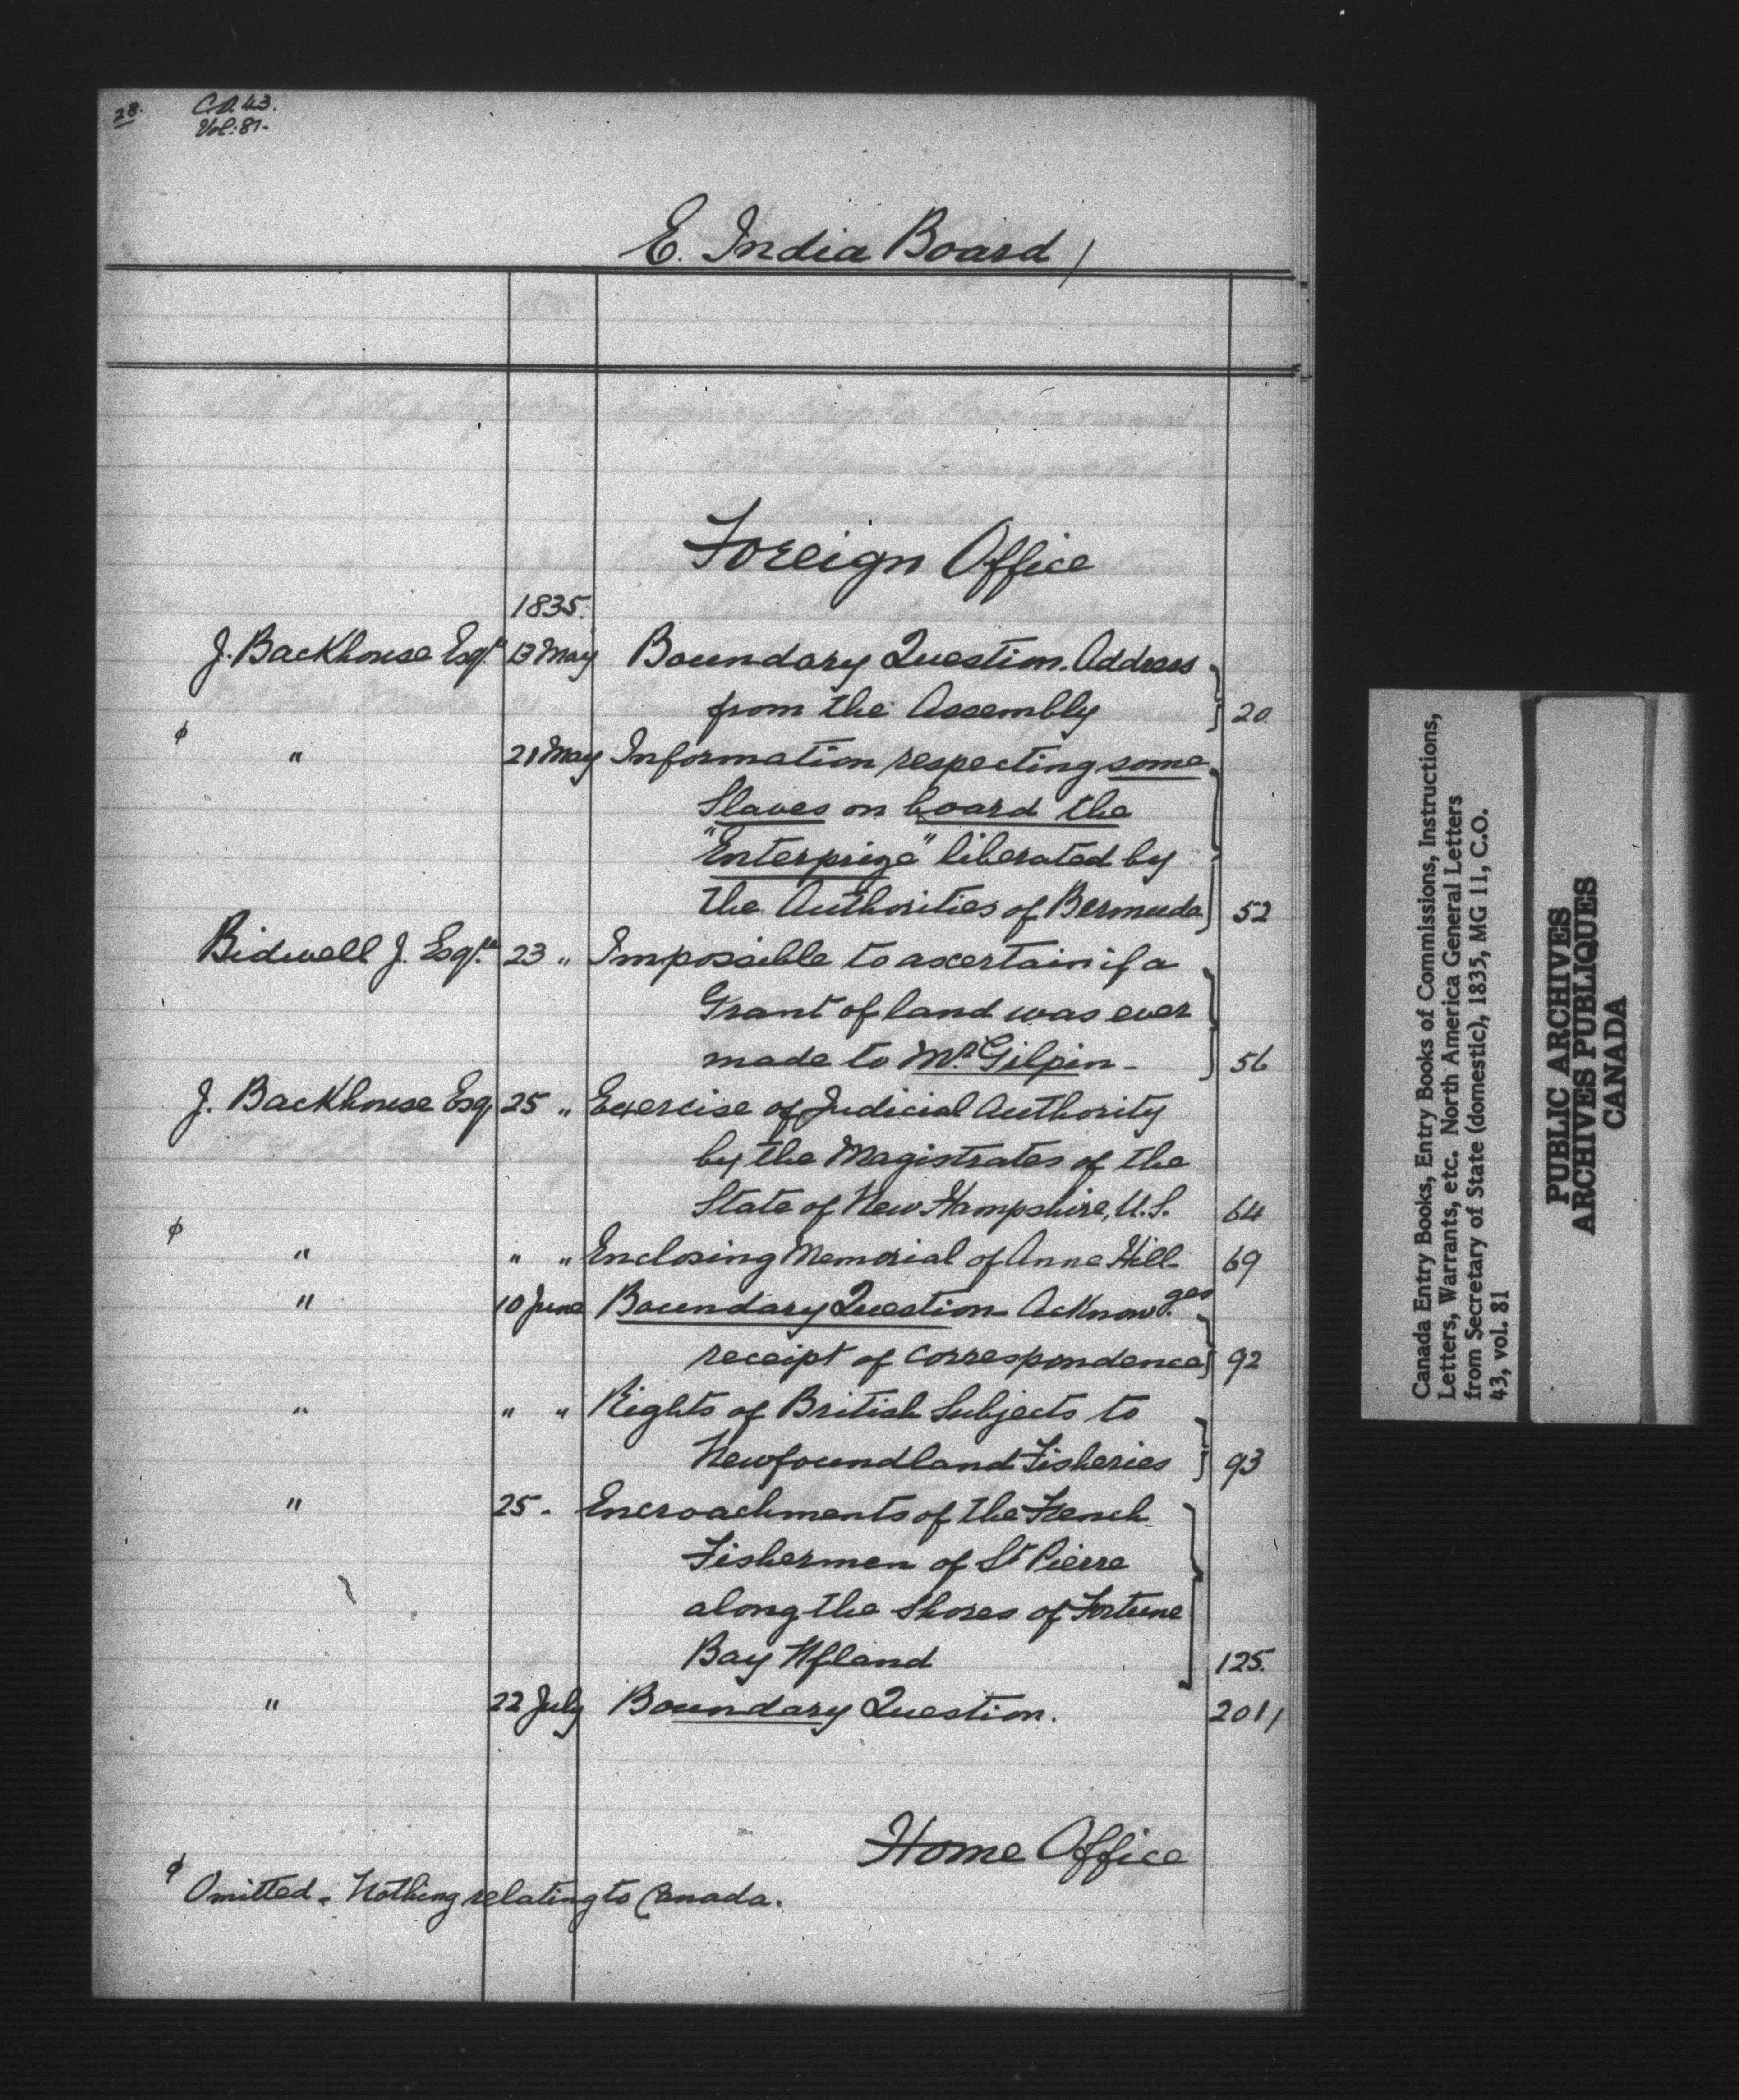 28. C.O. 43.
Vol: 81.
E. India Board /
Foreign Office
1835.
J. Backhouse Esqre 13 May Boundary Question. Address
from the Assembly 20
ϕ " 21 May Information respecting some
Slaves on board the
"Enterprize" liberated by
the Authorities of Bermuda 52
Bidwell J. Esqre 23 " Impossible to ascertain if a
Grant of land was ever
made to Mr. Gilpin - 56
J. Backhouse Esq 25 " Exercise of Judicial Authority
by the Magistrates of the
State of New Hampshire, U.S. 64
ϕ " " " Enclosing Memorial of Anne Hill - 69
" 10 June Boundary Question - Acknowges
receipt of correspondence 92
" " " Rights of British Subjects to
Newfoundland Fisheries 93
" 25 - Encroachments of the French
Fishermen of St Pierre
along the Shores of Fortune
Bay Nfland 125.
" 22 July Boundary Question. 201 /
Home Office
ϕ Omitted - Nothing relating to Canada.
Canada Entry Books, Entry Books of Commissions, Instructions,
Letters, Warrants, etc. North America General Letters
from Secretary of State (domestic), 1835, MG 11, C.O.
43, vol. 81
PUBLIC ARCHIVES
ARCHIVES PUBLIQUES
CANADA